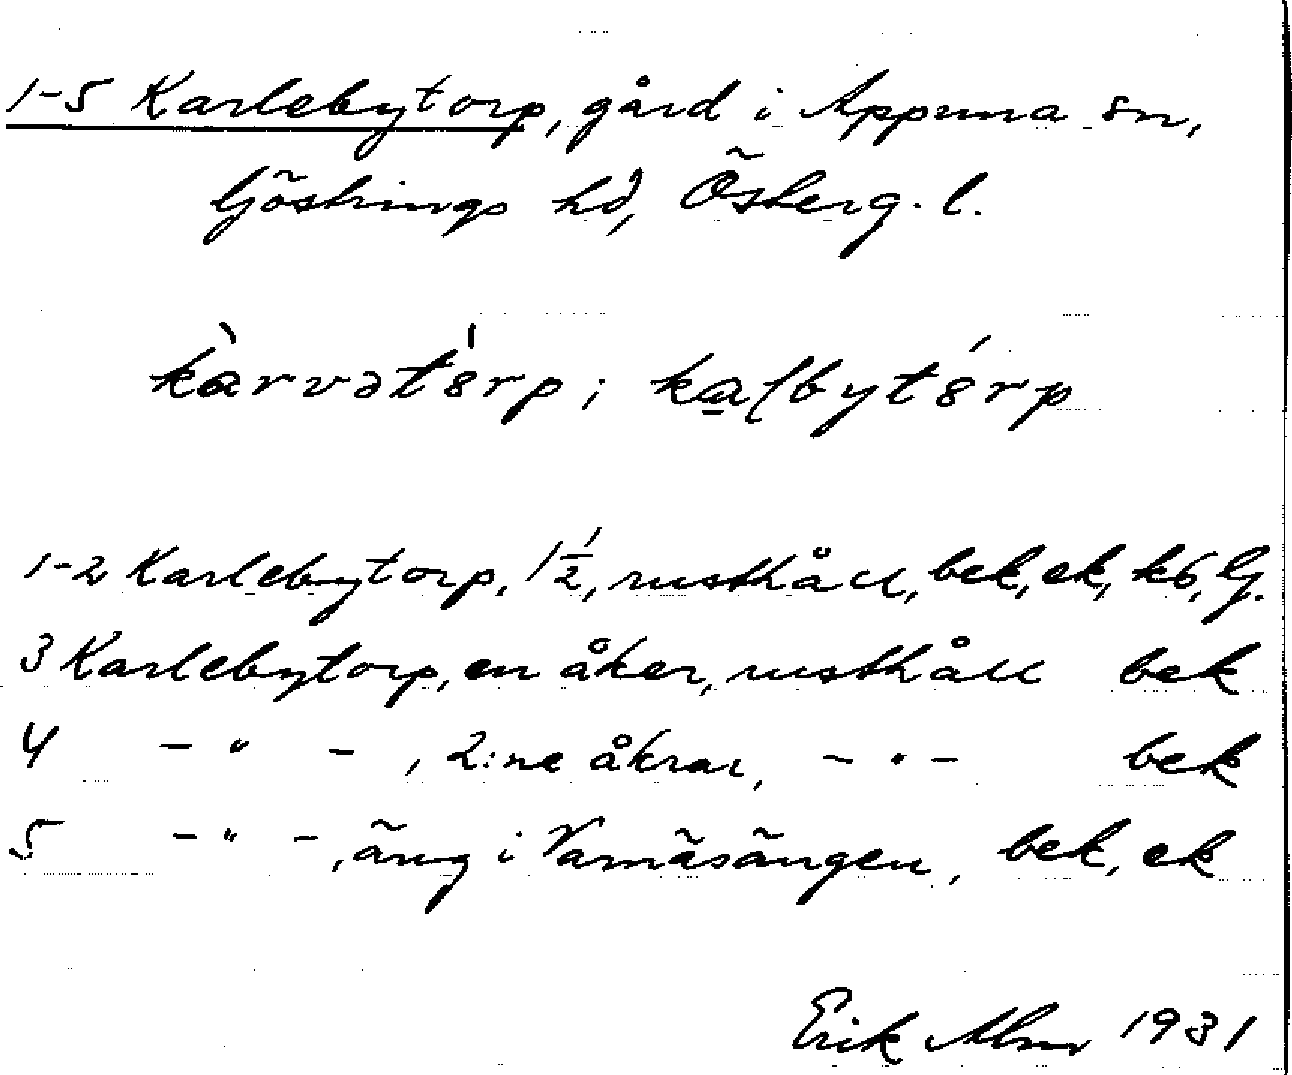 1-5 Karlebytorp, gård i Appuna sn,
Göstrings hd, Österg. l.
kàrvətó̍rp; kalbytórp
1-2 Karlebytorp, 1 1/2, rusthåll, bek, ek, k6, G.
3 Karlebytorp, en åker, rusthåll bek
4 - " - , 2:ne åkrar, - " - bek
5 - " - , äng i Varnäsängen, bek, ek
Erik Alm 1931